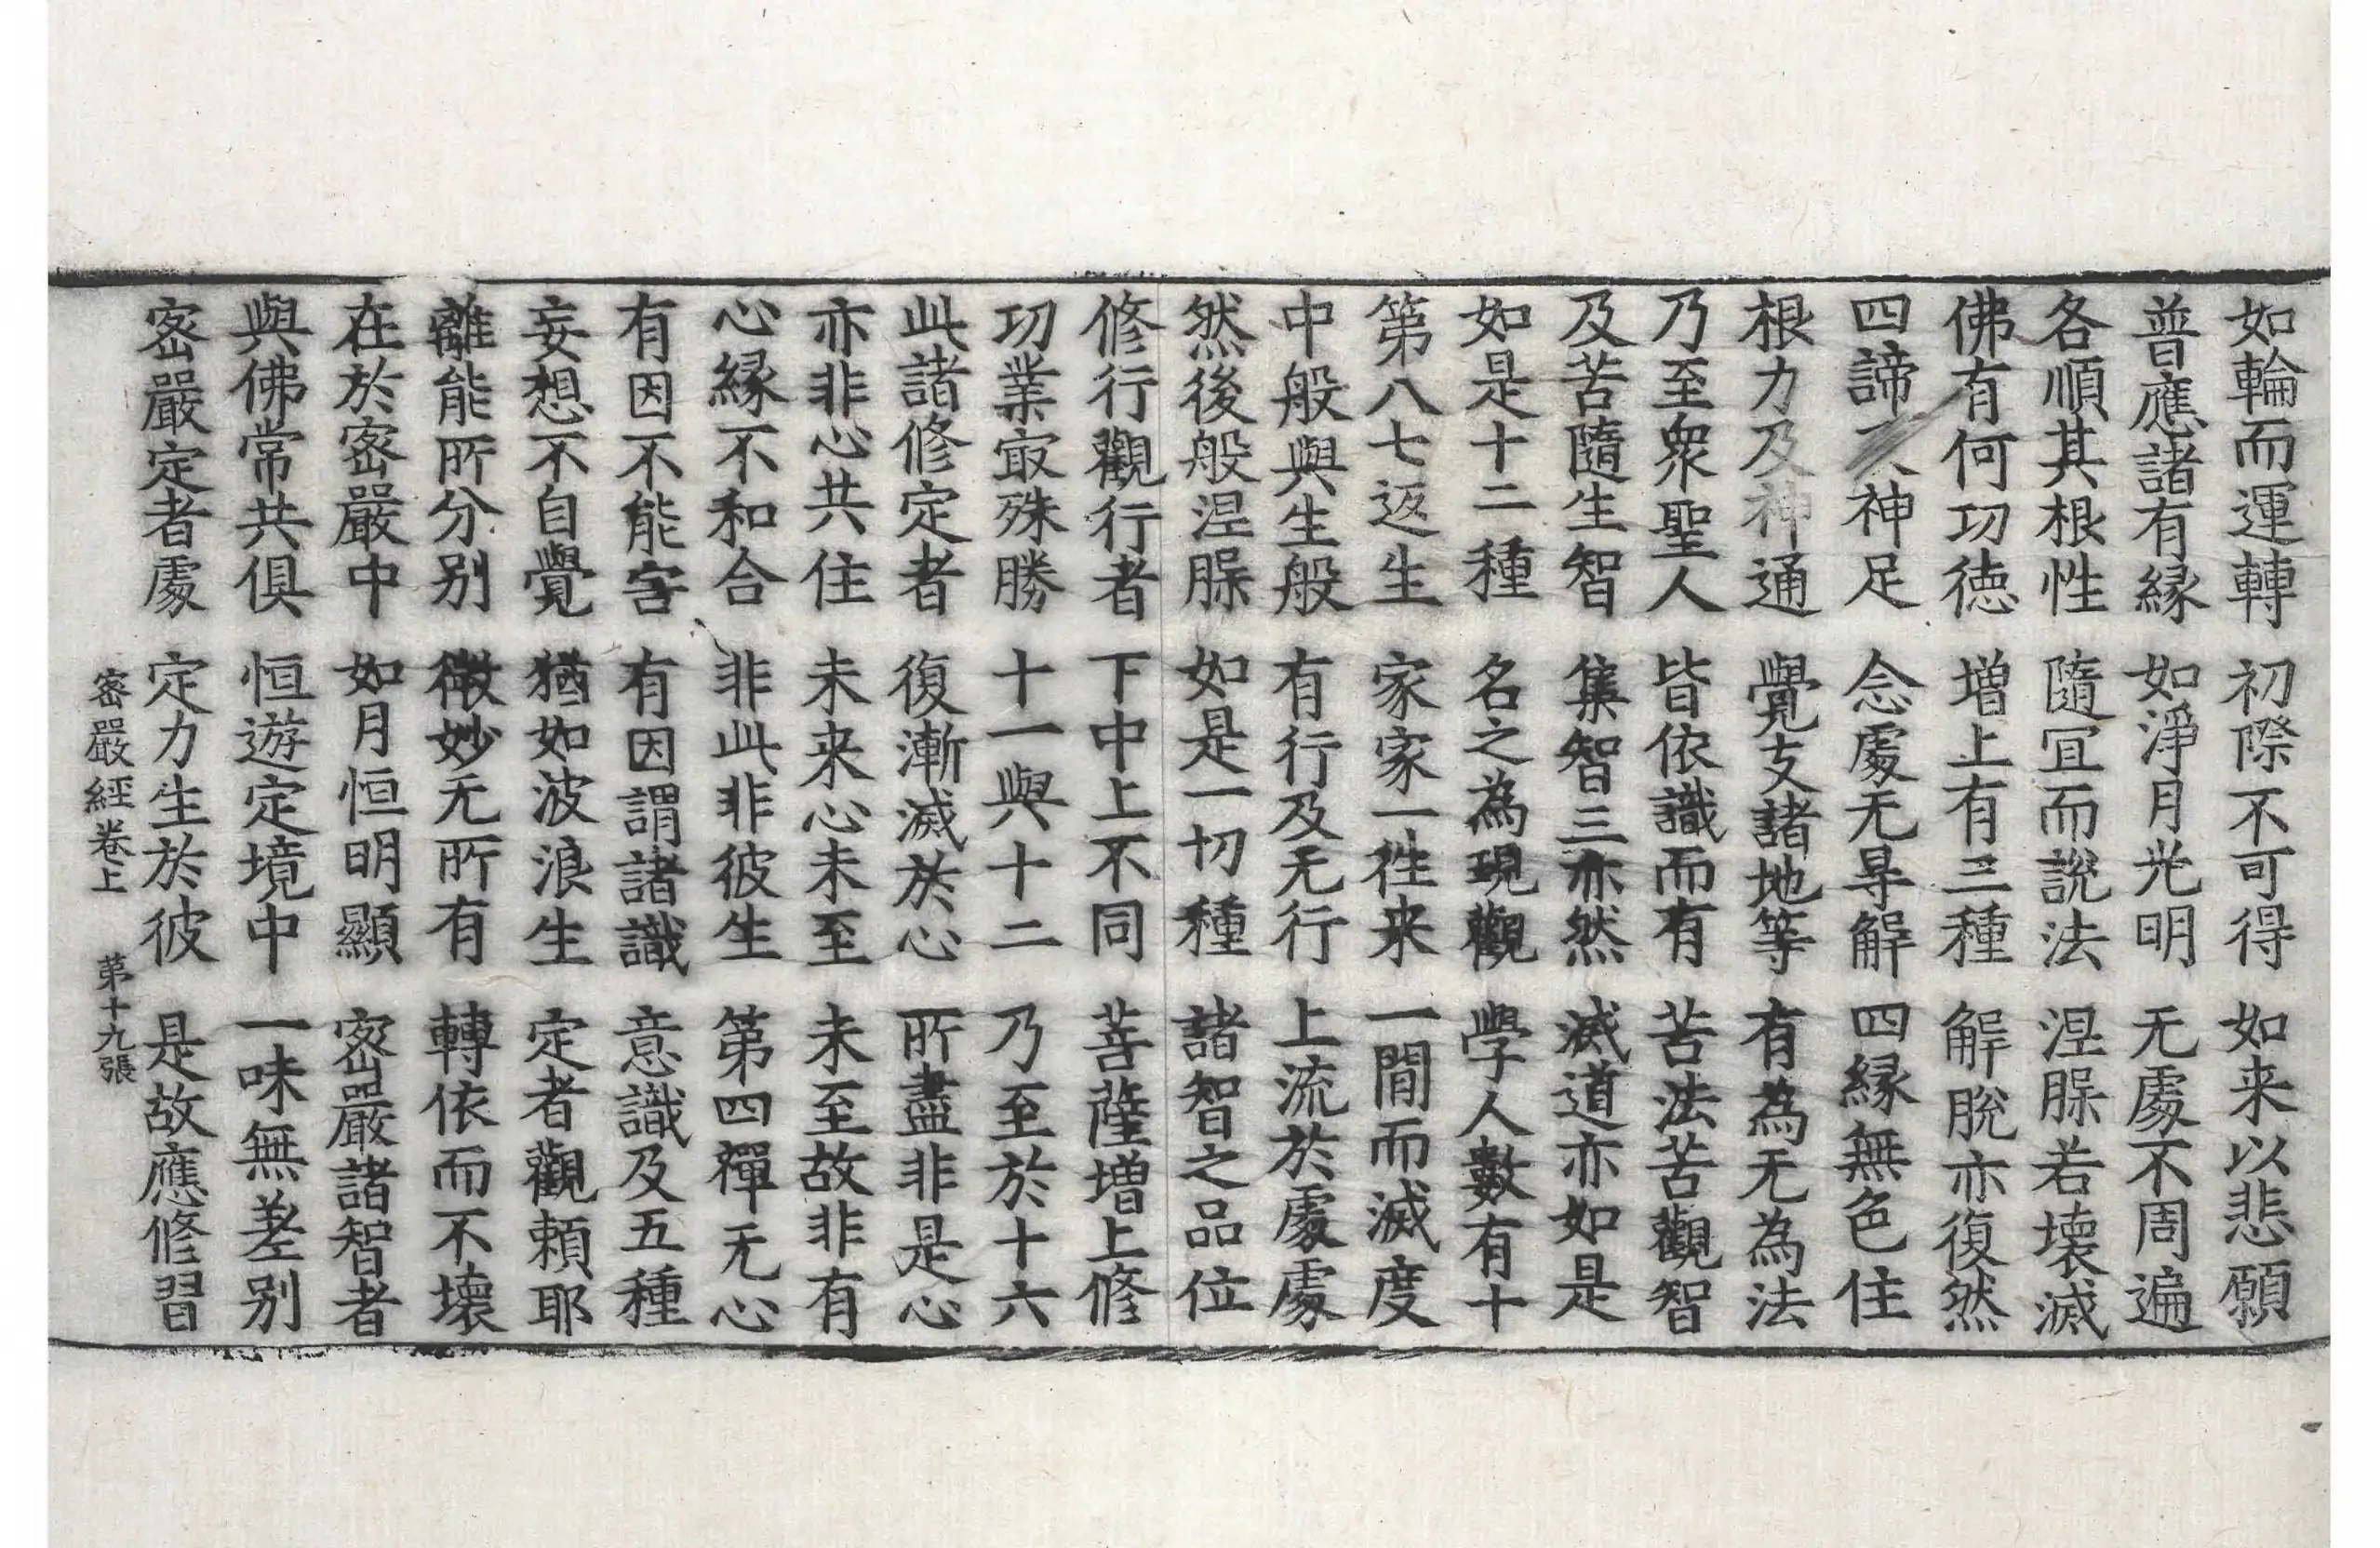 如輪而運轉 初際不可得 如来以悲願
普應諸有縁 如淨月光明 无處不周遍
各順其根性 隨冝而說法 涅脵若壊滅
佛有何功徳 增上有三種 解脫亦復然
四諦 神足 念處无㝵解 四縁無色住
根力及神通 覺支諸地等 有為无為法
乃至衆聖人 皆依識而有 苦法苦觀智
及苦隨生智 集智三亦然 滅道亦如是
如是十二種 名之為現觀 學人數有十
第八七返生 家家一徃来 一閒而滅度
中般與生般 有行及无行 上流於處處
然後般涅脵 如是一切種 諸智之品位
修行觀行者 下中上不同 菩薩增上修
功業㝡殊勝 十一與十二 乃至於十六
此諸修定者 復漸滅於心 所盡非是心
亦非心共住 未来心未至 未至故非有
心縁不和合 非此非彼生 第四禪无心
有因不能害 有因謂諸識 意識及五種
妄想不自覺 猶如波浪生 定者觀賴耶
離能所分别 微妙无所有 轉依而不壊
在於密嚴中 如月恒明顯 密嚴諸智者
與佛常共俱 恒遊定境中 一味無差别
密嚴定者處 定力生於彼 是故應修習
密嚴經卷上 第十九張